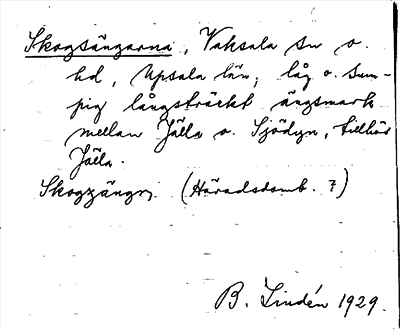 Skogsängarna, Vaksala sn o.
hd, Upsala län; låg o. sum-
pig långsträckt ängsmark
mellan Jälla o. Sjödyn, tillhör
Jälla.
Skogzängr. (Häradsdomb. ?)
B. Lindén 1929.